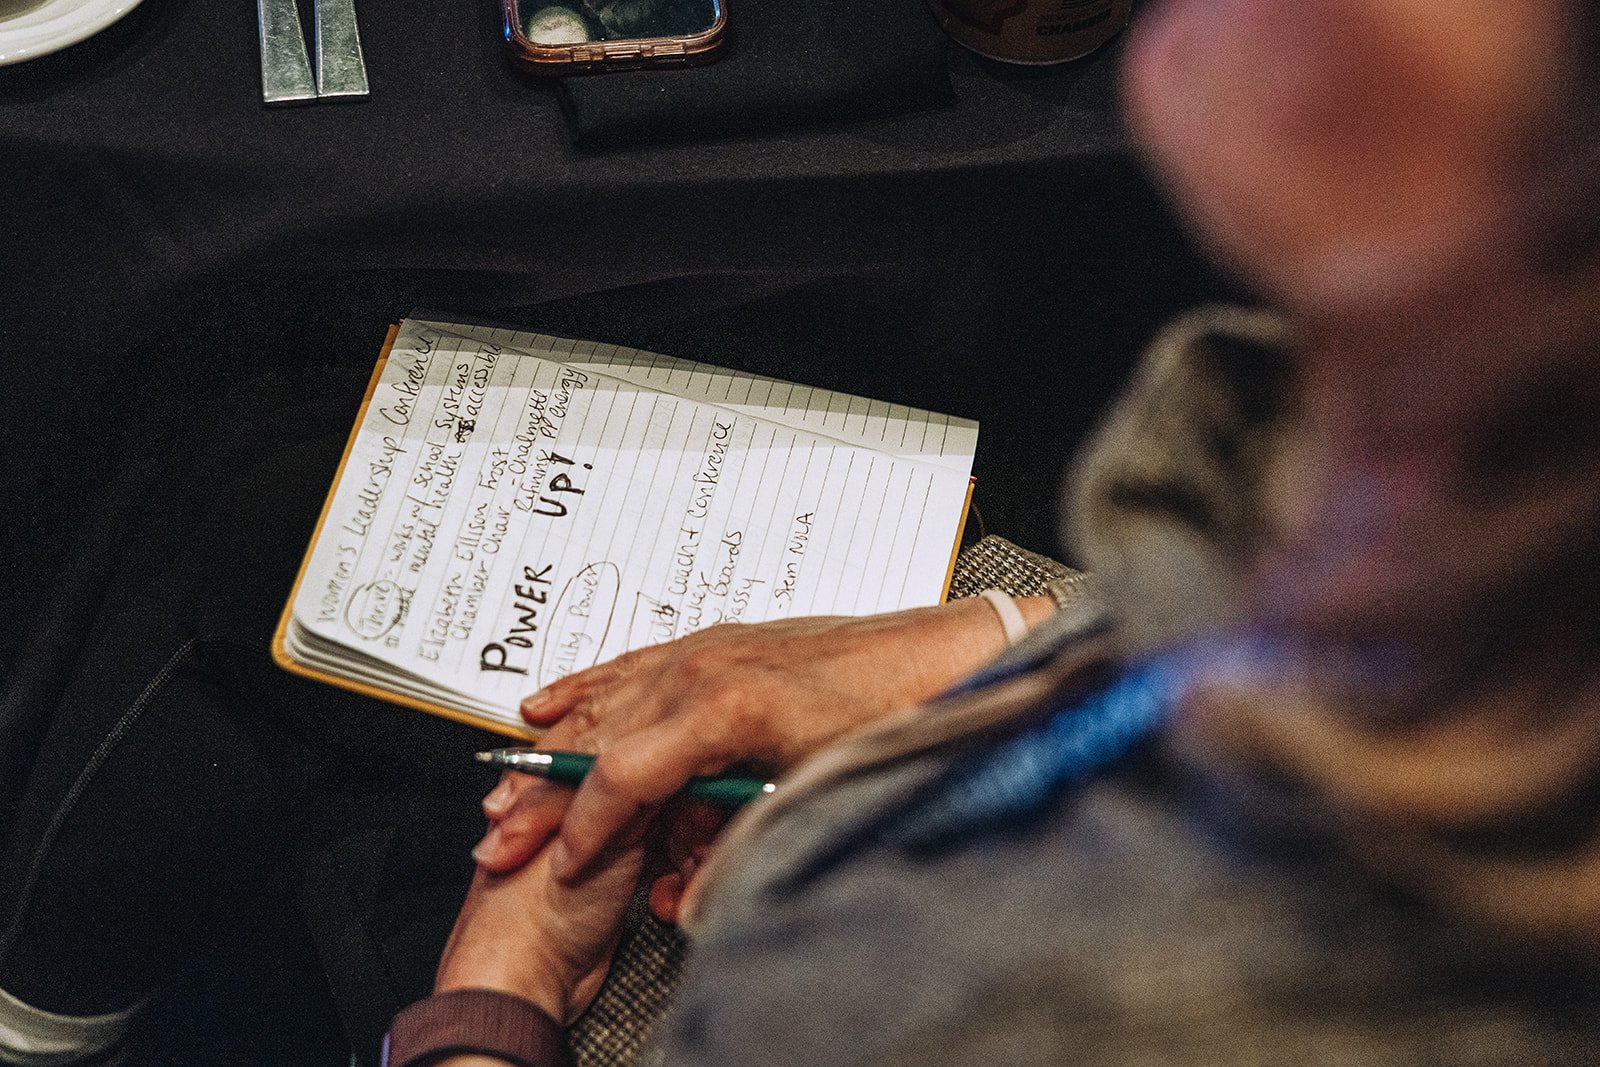 Women's Leadership Conference
Thrive - works w/ school systems
mental health accessible
Elizabeth Ellison Frost
Chamber Chair - Chalmette
Refining PBF Energy
POWER UP!
Power
Coach + Conference
Boards
Sassy
- Stem NOLA
CHAMBER